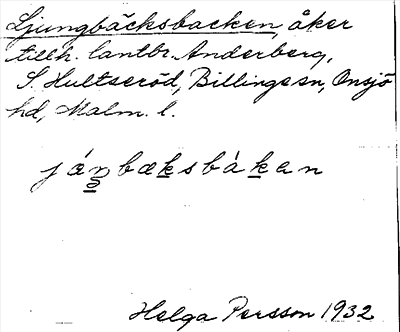 Ljungbäcksbacken, åker
tillh. lantbr. Anderberg,
S. Hultseröd, Billinge sn, Onsjö
hd, Malm. l.
jáṉbæḵsbàḵan
Helga Persson 1932